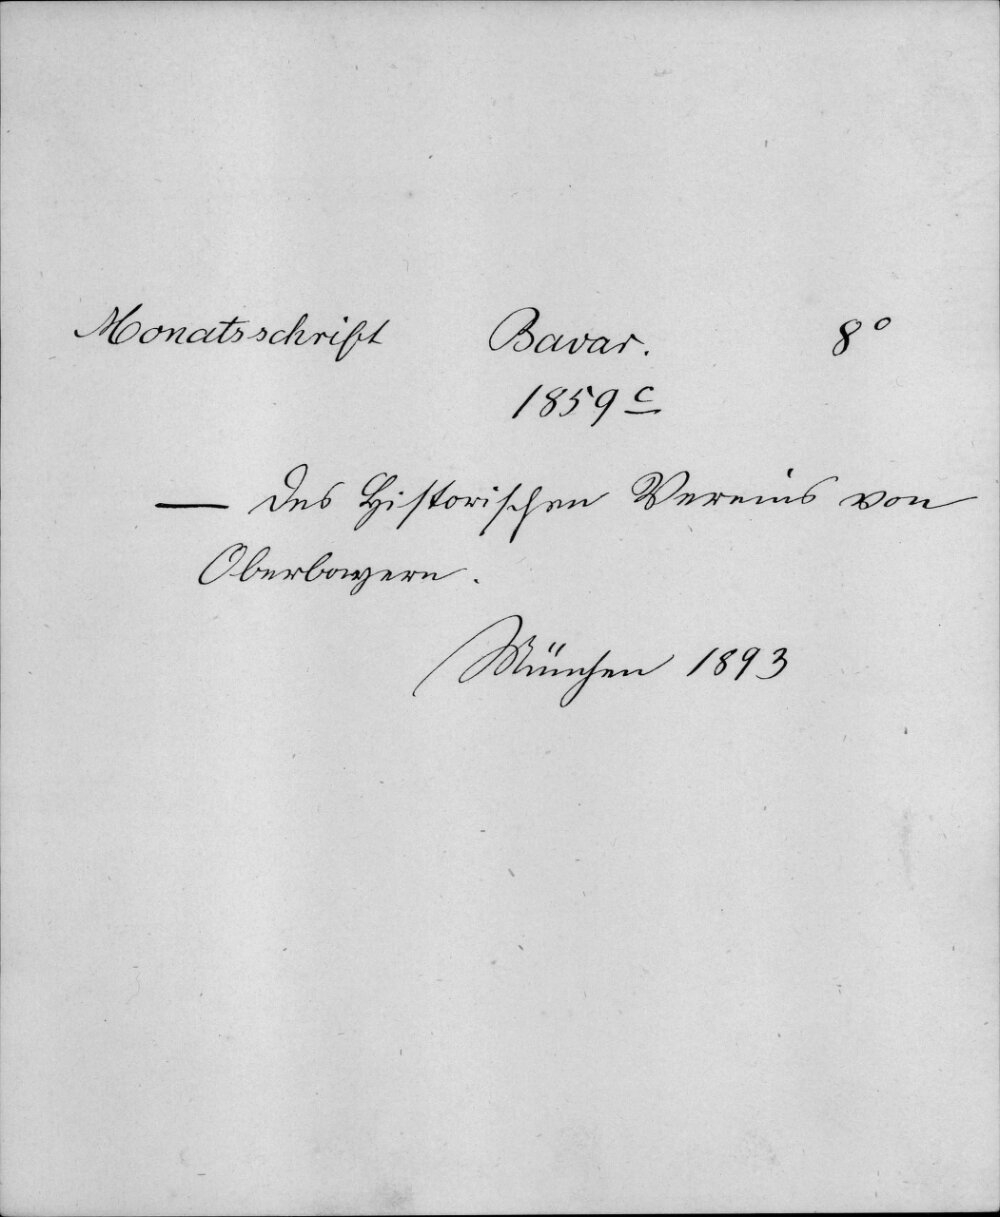 Monatsschrift Bavar. 8°
1859 c
— des Historischen Vereins von
Oberbayern.
München 1893